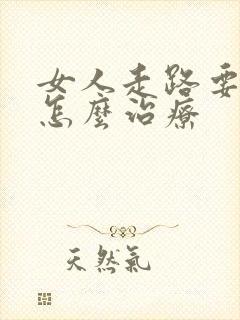 女人走路要
怎麼治療
天然氣